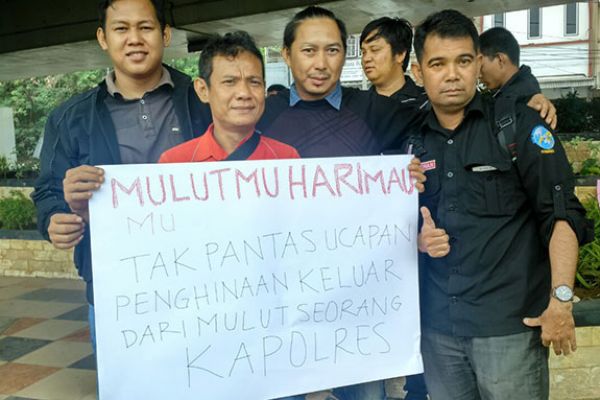 MULUTMU HARIMAU
MU
TAK PANTAS UCAPAN
PENGHINAAN KELUAR
DARI MULUT SEORANG
KAPOLRES